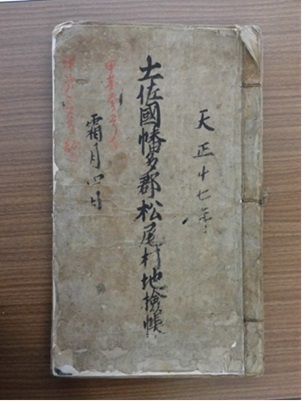 天正十七年
土佐國幡多郡松尾村地検帳
霜月四日